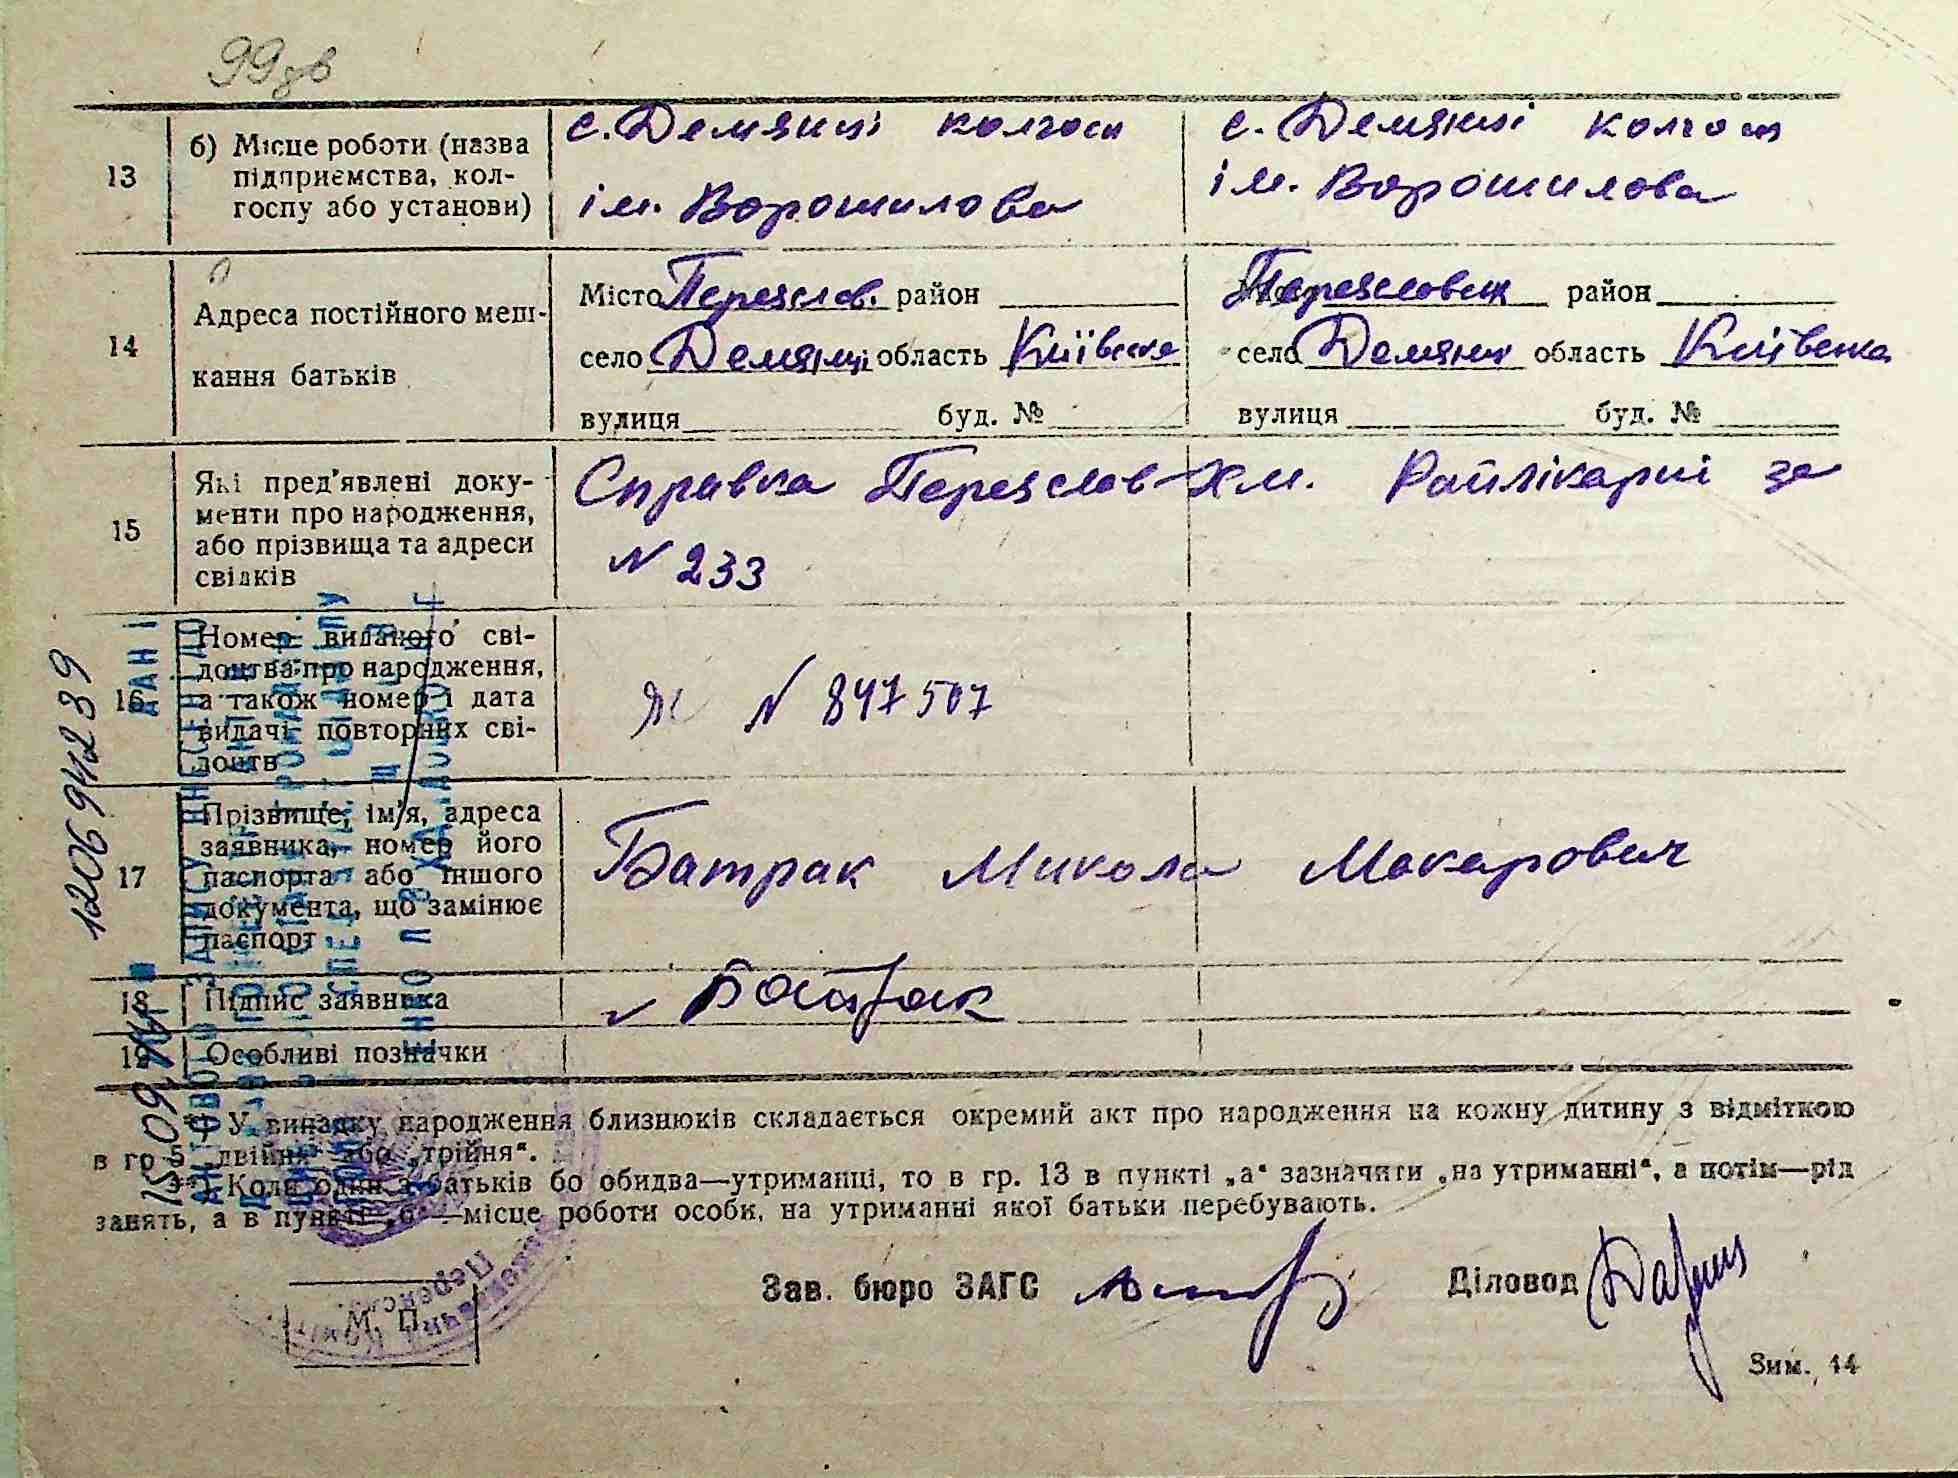 99 зв
13
б) Місце роботи (назва
підприємства, кол-
госпу або установи)
с. Демянці колгосп
ім. Ворошилова
с. Демянці колгосп
ім. Ворошилова
14
Адреса постійного меш-
кання батьків
Місто Переяслов. район
село Демянці область Київська
вулиця буд. №
Переяславськ район
село Демянці область Київська
вулиця буд. №
15
Які пред'явлені доку-
менти про народження,
або прізвища та адреси
свідків
Справка Переяслов-Хм. Райлікарні за
N 233
16
Номер виданого сві-
доцтва про народження,
а також номер і дата
видачі повторних сві-
доцтв
Я N 847507
17
Прізвище, ім'я, адреса
заявника, номер його
паспорта або іншого
документа, що замінює
паспорт
Батрак Микола Макарович
18
Підпис заявника
Батрак
19
Особливі позначки
*) У випадку народження близнюків складається окремий акт про народження на кожну дитину з відміткою
в гр 5 „двійня“ або „трійня“.
**) Коли один з батьків бо обидва—утриманці, то в гр. 13 в пункті „а“ зазначити „на утриманні“, а потім—рід
занять, а в пункті „б“—місце роботи особи, на утриманні якої батьки перебувають.
Зав. бюро ЗАГС
Діловод
М. П.
Зим. 14
ДАНІ
АКТОВОГО ЗАПИСУ ВНЕСЕНІ ДО
120694239
15.09